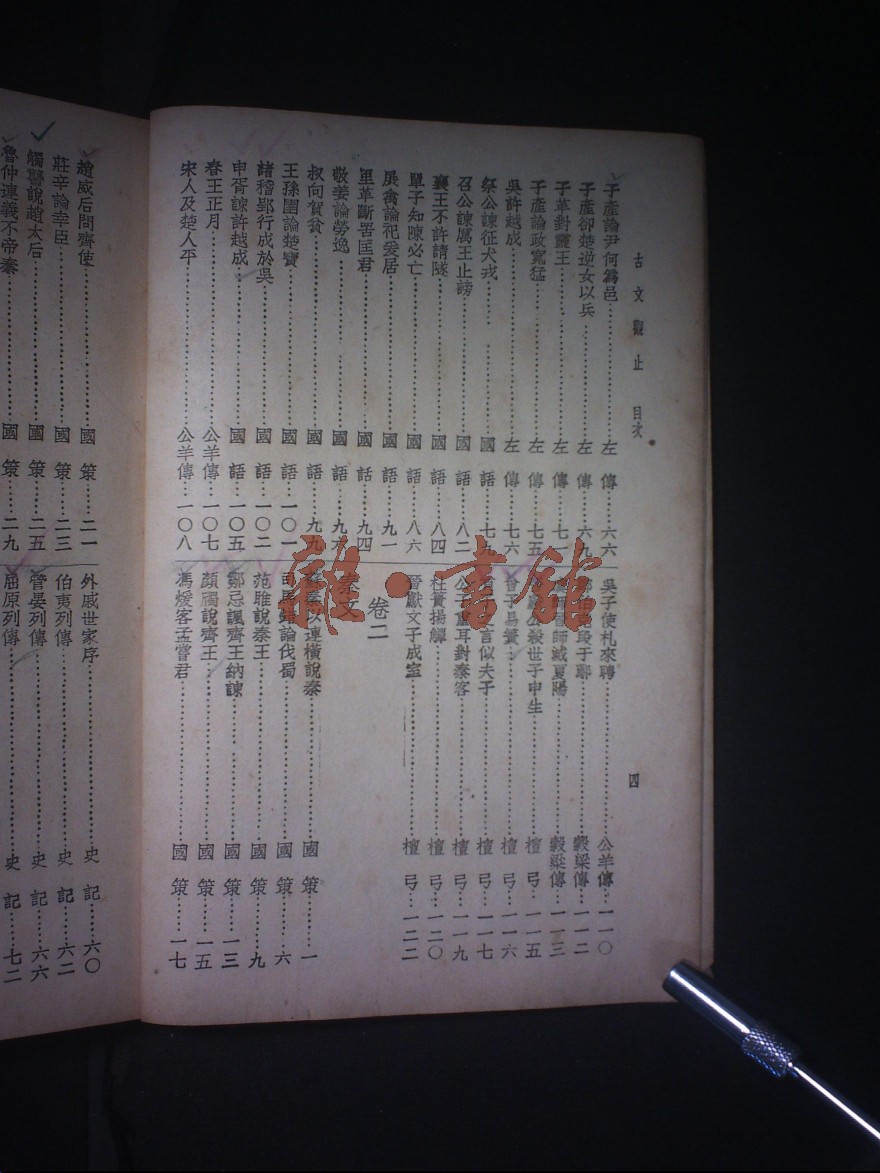 古文觀止 目次
四
子產論尹何爲邑……左傳…六六
子產卻楚逆女以兵……左傳…六九
子革對靈王……左傳…七一
子產論政寬猛……左傳…七五
吳許越成……左傳…七六
祭公諫征犬戎……國語…七九
召公諫厲王止謗……國語…八二
襄王不許請隧……國語…八四
單子知陳必亡……國語…八六
展禽論祀爰居……國語…九一
里革斷罟匡君……國話…九四
敬姜論勞逸……國語…九六
叔向賀貧……國語…九九
王孫圉論楚寶……國語…一〇一
諸稽郢行成於吳……國語…一〇二
申胥諫許越成……國語…一〇五
春王正月……公羊傳…一〇七
宋人及楚人平……公羊傳…一〇八
吳子使札來聘……公羊傳…一一〇
段于鄢……穀梁傳…一一二
師滅夏陽……穀梁傳…一一三
公殺世子申生……檀弓…一一五
曾子易簀……檀弓…一一六
言似夫子……檀弓…一一七
公子重耳對秦客……檀弓…一一九
杜蕢揚觶……檀弓…一二〇
晉獻文子成室……檀弓…一二二
卷二
秦文
蘇秦以連橫說秦……國策…一
司馬錯論伐蜀……國策…六
范雎說秦王……國策…九
鄒忌諷齊王納諫……國策…一三
顏斶說齊王……國策…一五
馮煖客孟嘗君……國策…一七
趙威后問齊使……國策…二一
莊辛論幸臣……國策…二三
觸讋說趙太后……國策…二五
魯仲連義不帝秦……國策…二九
外戚世家序……史記…六〇
伯夷列傳……史記…六二
管晏列傳……史記…六六
屈原列傳……史記…七二
雜·書館